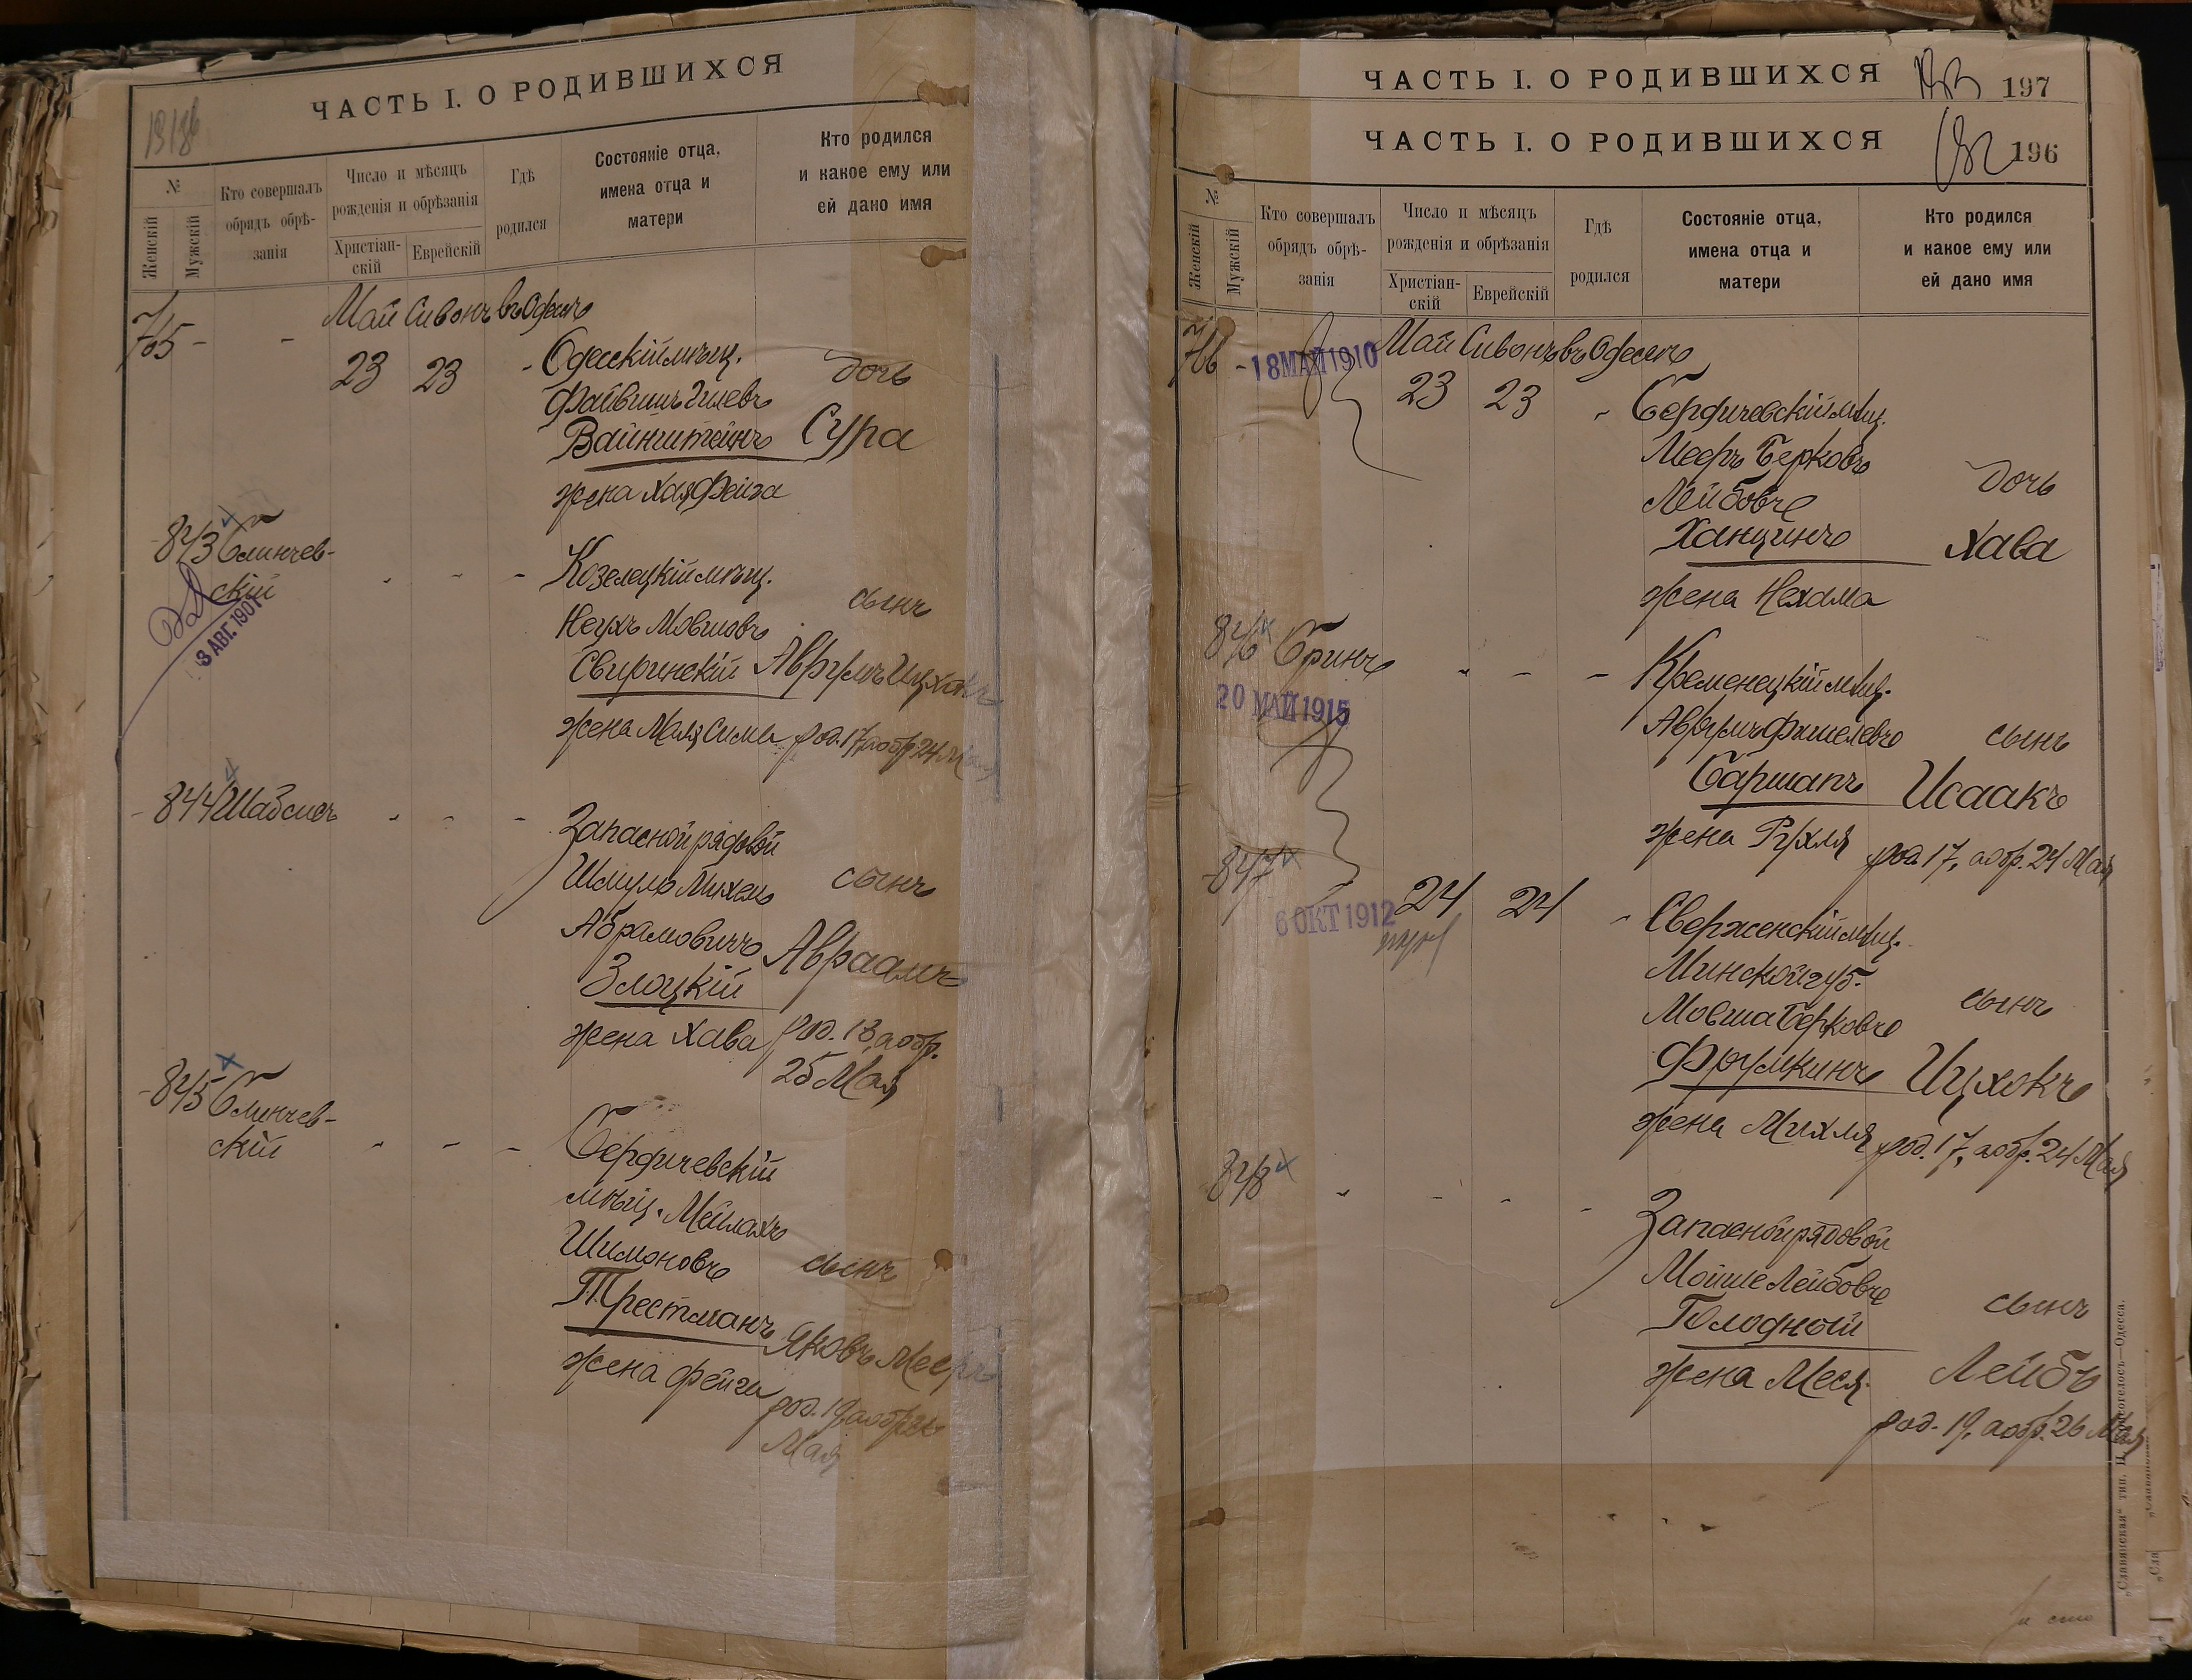 ЧАСТЬ I. О РОДИВШИХСЯ
№
Женскій
Мужскій
Кто совершалъ
обрядъ обрѣ-
занія
Число и мѣсяцъ
рожденія и обрѣзанія
Христіан-
скій
Еврейскій
Гдѣ
родился
Состояніе отца,
имена отца и
матери
Кто родился
и какое ему или
ей дано имя
Май Сивонъ въ Одессѣ
765 - - 23 23 - Одесскій мѣщ.
дочь
Файвишъ Гилевъ
Вайнштейнъ Сура
жена Хая Фейга
843 Блинчев-
скій
3 АВГ. 1907
- - - Козелецкій мѣщ.
сынъ
Неухъ Мовшовъ
Свиринскій Аврумъ Ицхокъ
жена Маля Сима род. 17, а обр. 24 Мая
- 844 Шабсисъ - - - Запасной рядовой
Шмуль Михель сынъ
Абрамовичъ Авраамъ
Злоцкій
жена Хава род. 18, а обр.
25 Мая
- 845 Блинчев-
скій - - - Бердичевскій
мѣщ. Мейлахъ
Шимоновъ сынъ
Трестманъ Яковъ Мееръ
жена Фейга род. 19, а обр. 26
Мая
ЧАСТЬ I. О РОДИВШИХСЯ 197
ЧАСТЬ I. О РОДИВШИХСЯ 196
№
Женскій
Мужскій
Кто совершалъ
обрядъ обрѣ-
занія
Число и мѣсяцъ
рожденія и обрѣзанія
Христіан-
скій
Еврейскій
Гдѣ
родился
Состояніе отца,
имена отца и
матери
Кто родился
и какое ему или
ей дано имя
Май Сивонъ въ Одессѣ
766 - 18 МАЙ 1910
23 23 - Бердичевскій мѣщ.
Мееръ Берковъ
Лейбовъ дочь
Ханцинъ Хава
жена Нехама
846 Бринъ - - - Кременецкій мѣщ.
20 МАЙ 1915
Аврумъ Фишелевъ сынъ
Баршапъ Исаакъ
жена Рухля род. 17, а обр. 24 Мая
- 847 24 24 - Сверженскій мѣщ.
6 ОКТ 1912
Минской губ.
Мовша Берковъ сынъ
Фрумкинъ Ицхокъ
жена Михля род. 17, а обр. 24 Мая
848 - - - - Запасной рядовой
Мойше Лейбовъ сынъ
Голодный
жена Меся Лейбъ
род. 19, а обр. 26 Мая